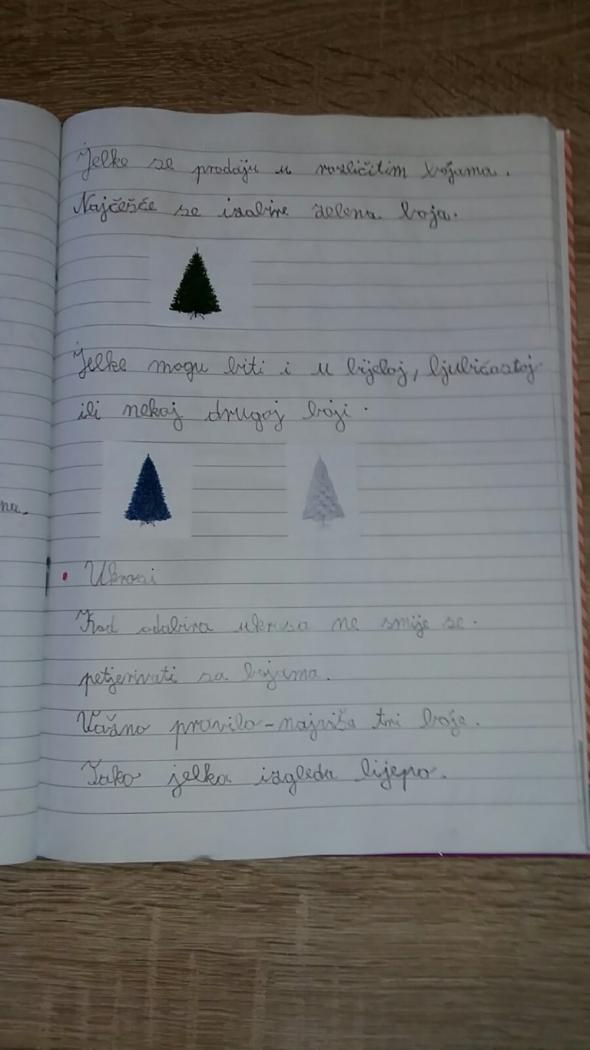 Jelke se prodaju u različitim bojama.
Najčešće se izabire zelena boja.
Jelke mogu biti i u bijeloj, ljubičastoj
ili nekoj drugoj boji.
na.
• Ukrasi
Kod odabira ukrasa ne smije se
petjerivati sa bojama.
Važno pravilo - najviše tri boje.
Tako jelka izgleda lijepo.